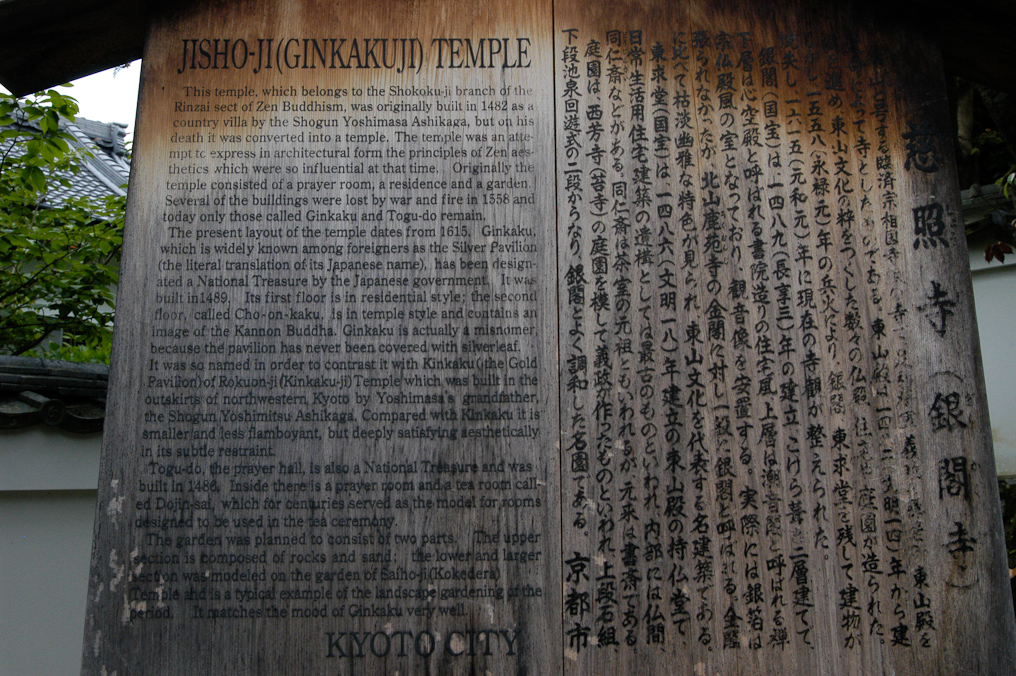 JISHO-JI(GINKAKUJI) TEMPLE
This temple, which belongs to the Shokoku-ji branch of the
Rinzai sect of Zen Buddhism, was originally built in 1482 as a
country villa by the Shogun Yoshimasa Ashikaga, but on his
death it was converted into a temple. The temple was an atte-
mpt to express in architectural form the principles of Zen aes-
thetics which were so influential at that time. Originally the
temple consisted of a prayer room, a residence and a garden.
Several of the buildings were lost by war and fire in 1558 and
today only those called Ginkaku and Togu-do remain.
The present layout of the temple dates from 1615. Ginkaku,
which is widely known among foreigners as the Silver Pavilion
(the literal translation of its Japanese name), has been design-
ated a National Treasure by the Japanese government. It was
built in1489. Its first floor is in residential style; the second
floor, called Cho-on-kaku, is in temple style and contains an
image of the Kannon Buddha. Ginkaku is actually a misnomer,
because the pavilion has never been covered with silverleaf.
It was so named in order to contrast it with Kinkaku(the Gold
Pavilion) of Rokuon-ji(Kinkaku-ji)Temple which was built in the
outskirts of northwestern Kyoto by Yoshimasa's grandfather,
the Shogun Yoshimitsu Ashikaga. Compared with Kinkaku it is
smaller and less flamboyant, but deeply satisfying aesthetically
in its subtle restraint.
Togu-do, the prayer hall, is also a National Treasure and was
built in 1486. Inside there is a prayer room and a tea room call-
ed Dojin-sai, which for centuries served as the model for rooms
designed to be used in the tea ceremony.
The garden was planned to consist of two parts. The upper
section is composed of rocks and sand; the lower and larger
section was modeled on the garden of Saiho-ji(Kokedera)
Temple and is a typical example of the landscape gardening of the
period. It matches the mood of Ginkaku very well.
KYOTO CITY
慈照寺(銀閣寺)
東山と号する臨済宗相国寺 東山殿を
よって寺としたものである。東山殿は一四八二(文明一四)年から建
進め、東山文化の粋をつくした数々の仏殿、庭園が造られた。
一五五八(永禄元)年の兵火により、銀閣、東求堂を残して建物が
失し一六一五(元和元)年に現在の寺観が整えられた。
銀閣(国宝)は、一四八九(長享三)年の建立、こけら葺き二層建てで、
下層は心空殿と呼ばれる書院造りの住宅風、上層は潮音閣と呼ばれる禅
宗仏殿風の室となっており、観音像を安置する。実際には銀箔は
張られなかったが、北山鹿苑寺の金閣に対し一般に銀閣と呼ばれる。金閣
に比べて枯淡幽雅な特色が見られ、東山文化を代表する名建築である。
東求堂(国宝)は、一四八六(文明一八)年建立の東山殿の持仏堂で、
日常生活用住宅建築の遺構としては最古のものといわれ、内部には仏間、
同仁斎などがある。同仁斎は茶室の元祖ともいわれるが、元来は書斎である。
庭園は、西芳寺(苔寺)の庭園を模して義政が作ったものといわれ、上段石組、
下段池泉回遊式の二段からなり、銀閣とよく調和した名園である。
京都市